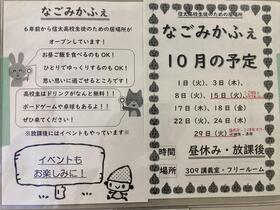 なごみかふぇ
6年前から信太高校生徒のための居場所が
オープンしています！
お昼ご飯を食べるのもOK！
ひとりでゆっくりするのもOK！
思い思いに過ごせるところです！
高校生はドリンクがなんと無料！！
ボードゲームや卓球もあるよ！！
ぜひ来てください！
※放課後にはイベントもやっています※
イベントも
お楽しみに！
信太高校生徒のための居場所
なごみかふぇ
10月の予定
1日(火)、3日(木)、
8日(火)、15日(火)、
17日(木)、18日(金)
22日(火)、24日(木)
29日(火)
時間 昼休み・放課後
場所 309講義室・フリールーム